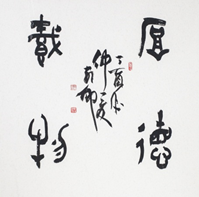 厚德
載物
丁酉
仲夏